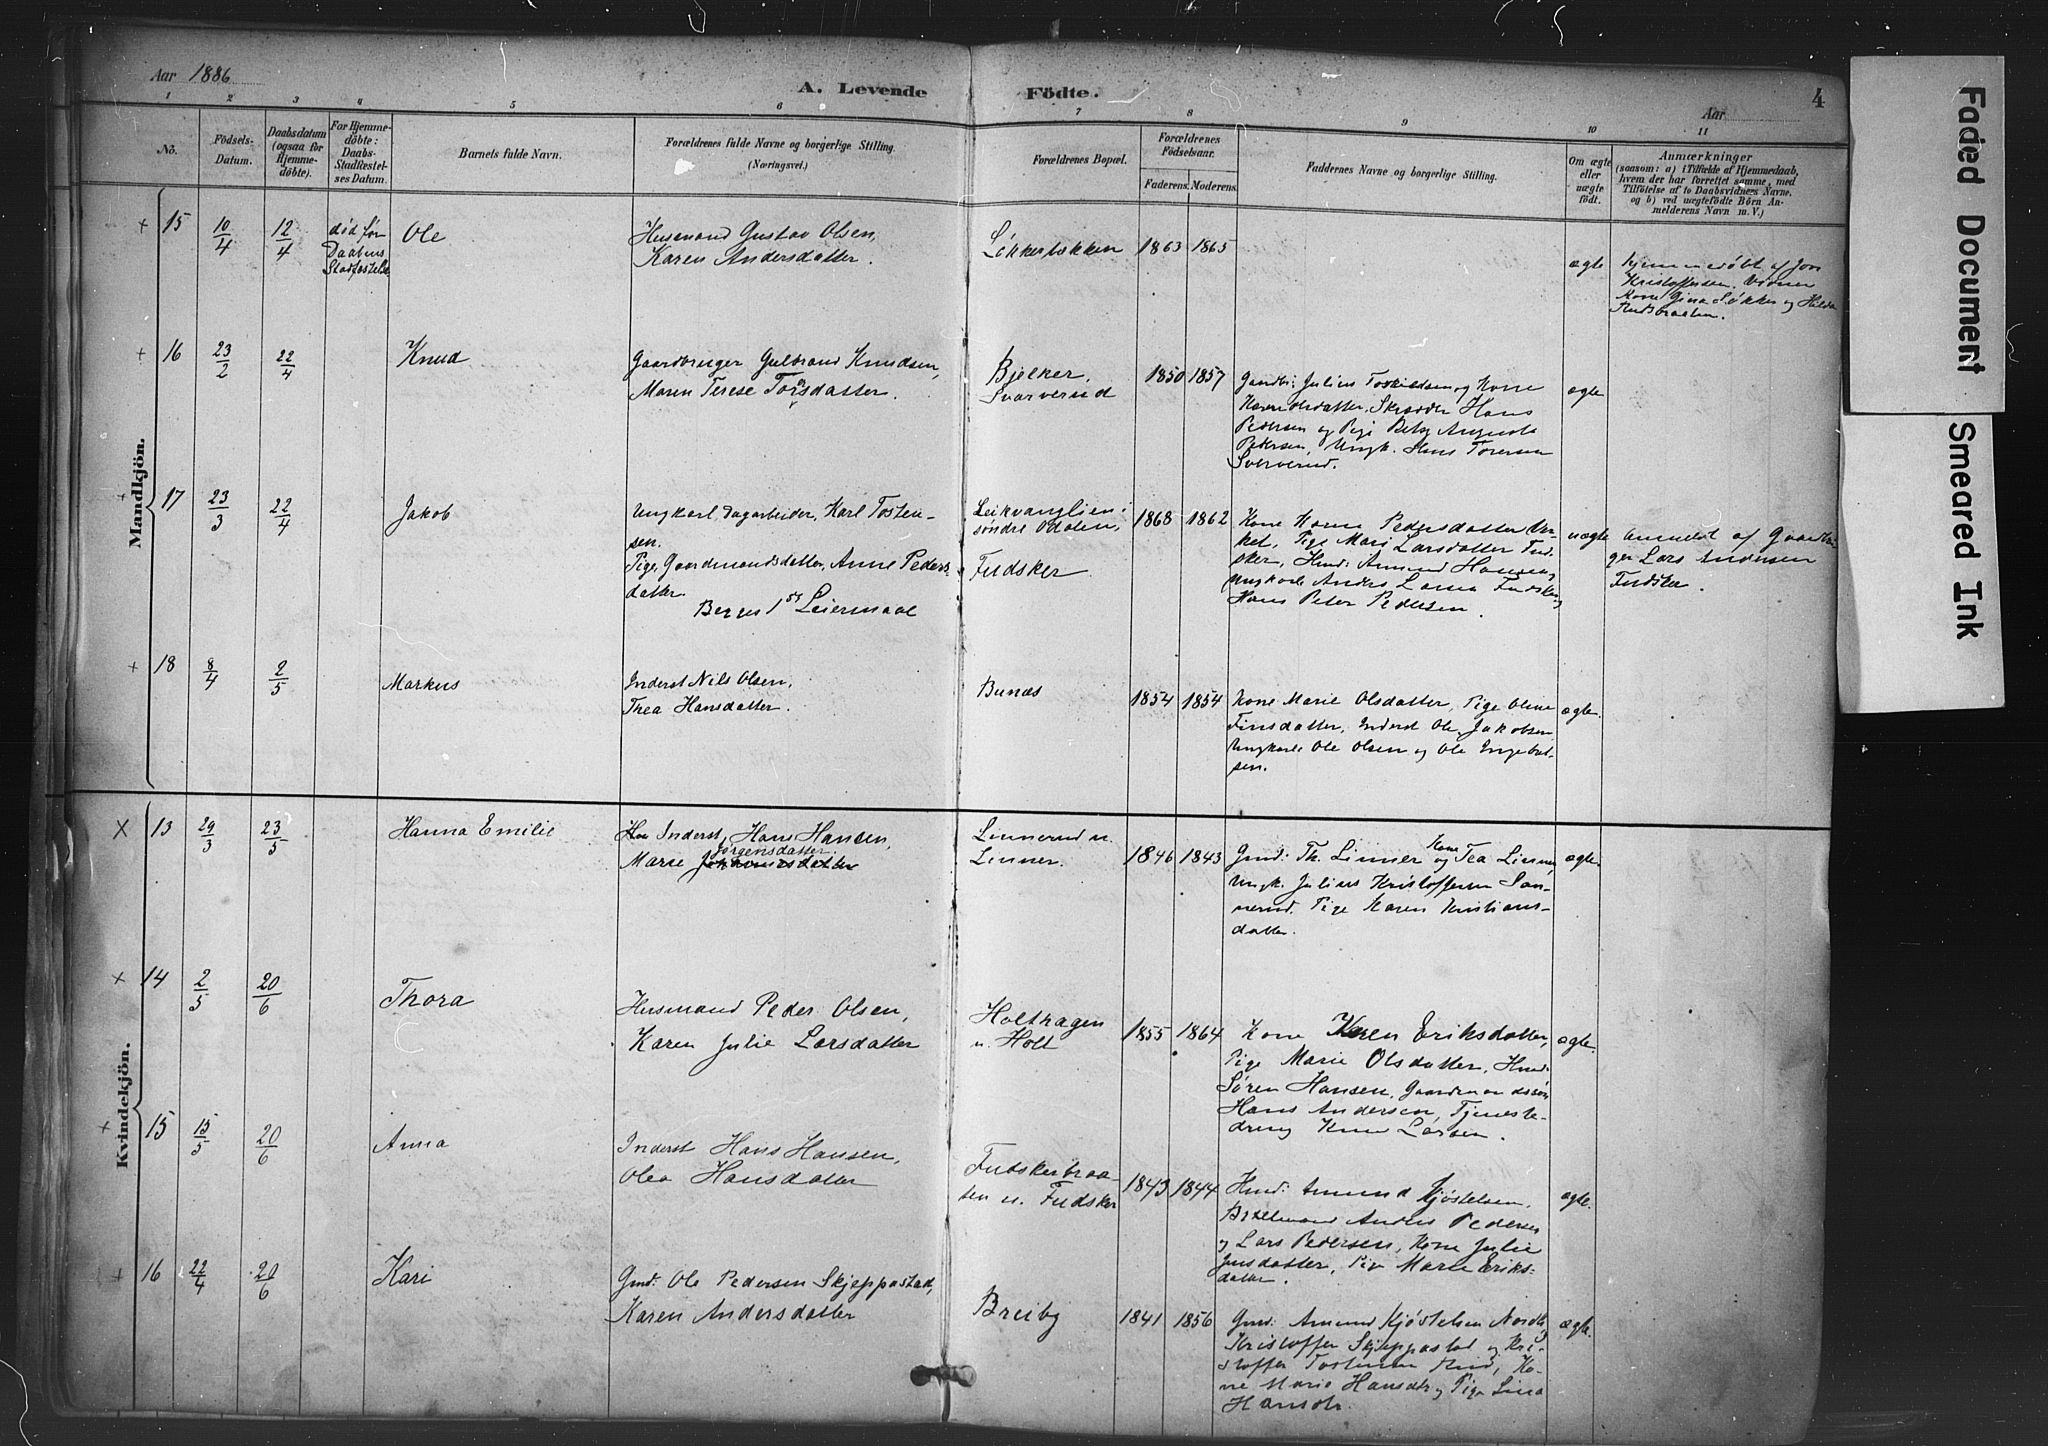 Aar 1886
A. Levende Födte.
Aar
4
1 2 3 4 5 6 7 8 9 10 11
No.
Födsels-Datum.
Daabsdatum (ogsaa for Hjemmedöbte).
For Hjemmedöbte: Daabs-Stadfæstelses Datum.
Barnets fulde Navn.
Forældrenes fulde Navne og borgerlige Stilling. (Næringsvei.)
Forældrenes Bopæl.
Forældrenes Födselsaar.
Faderens. Moderens.
Faddernes Navne og borgerlige Stilling.
Om ægte eller uægte födt.
Anmærkninger
(saasom: a) i Tilfælde af Hjemmedaab,
hvem der har forrettet samme, med
Tilföielse af to Daabsvidners Navne.
og b) ved uægtefödte Börn An-
melderens Navn m. V.)
Mandkjön.
+ 15 10/4 12/4 død før Daabens Stadfæstelse Ole
Husmand Gustav Olsen,
Karen Andersdatter.
Løkkerbakken 1863 1865
ægte
hjemmedøbt af Jon
Kristoffersen. Vidner
Kone Gina Løkker og Hilda
+ 16 23/2 22/4 Knud
Gaardbruger Gulbrand Knudsen,
Maren Terese Torsdatter.
Bjølker,
Svarverud
1850 1857
Gaardbr: Julius Toskildsen og Kone
Karen Olsdatter, Skrædder Hans
Pedersen og Pige Augusta
Pedersen, Ungk. Hans Toresen
Svarverud.
ægte
+ 17 23/3 22/4 Jakob
Ungkarl, Dagarbeider, Karl Tosten-
sen.
Pige, Gaardmandsdatter, Anne Peders-
datter.
Begges 1st Leiermaal
Leikvanglien i
søndre Odalen,
Fudsker
1868 1862
Kone Karen Pedersdatter
Pige Mari Larsdatter Fud-
sker, Hmd: Amund Hansen,
Ungkarle Anders Larsen Fudsker,
Hans Peter Pedersen.
uægte
Anmeldt af Gaardbru-
ger Lars Andersen
Fudsker
+ 18 8/4 2/5 Markus
Inderst Nils Olsen,
Thea Hansdatter.
Bunæs
1854 1854
Kone Marie Olsdatter, Pige Oline
Finsdatter, Inderst Ole Jakobsen,
Ungkarle Ole Olsen og Ole Engebret-
sen.
ægte.
Kvindekjön.
X 13 29/3 23/5 Hanna Emilie
Inderst, Hans Hansen,
Jørgensdatter.
Marie Johannesdatter
Linnerud u.
Linner.
1846 1843
Gmd: Th. Linner og Kone Tea Linner,
Ungk. Julius Kristoffersen San-
nerud. Pige Karen Kristians-
datter.
ægte.
X 14 2/5 20/6 Thora
Husmand Peder Olsen,
Karen Julie Larsdatter
Holthagen
u. Holt
1855 1864
Kone Karen Eriksdatter,
Pige Marie Olsdatter, Hmd:
Søren Hansen, Gaardmandssøn
Hans Andersen, Tjeneste-
dreng Knud Larsen.
ægte.
+ 15 15/5 20/6 Anna
Inderst Hans Hansen,
Olea Hansdatter
Fudskerbraa-
ten u. Fudsker
1843 1844
Hmd: Amund Kjøstelsen,
Bøxelmand Anders Pedersen
og Lars Pedersen, Kone Julie
Jensdatter, Pige Marie Eriks-
datter.
ægte.
+ 16 22/4 20/6 Kari
Gmd: Ole Pedersen Skjeppastad,
Karen Andersdatter
Breiby
1841 1856
Gmd: Amund Kjøstelsen Nordby
Kristoffer Skjeppastad og Kri-
stoffer Tostensen Rud, Ko-
ne Marie Hansdtr og Pige Lina
Hansdtr.
ægte.
Faded Document
Smeared Ink